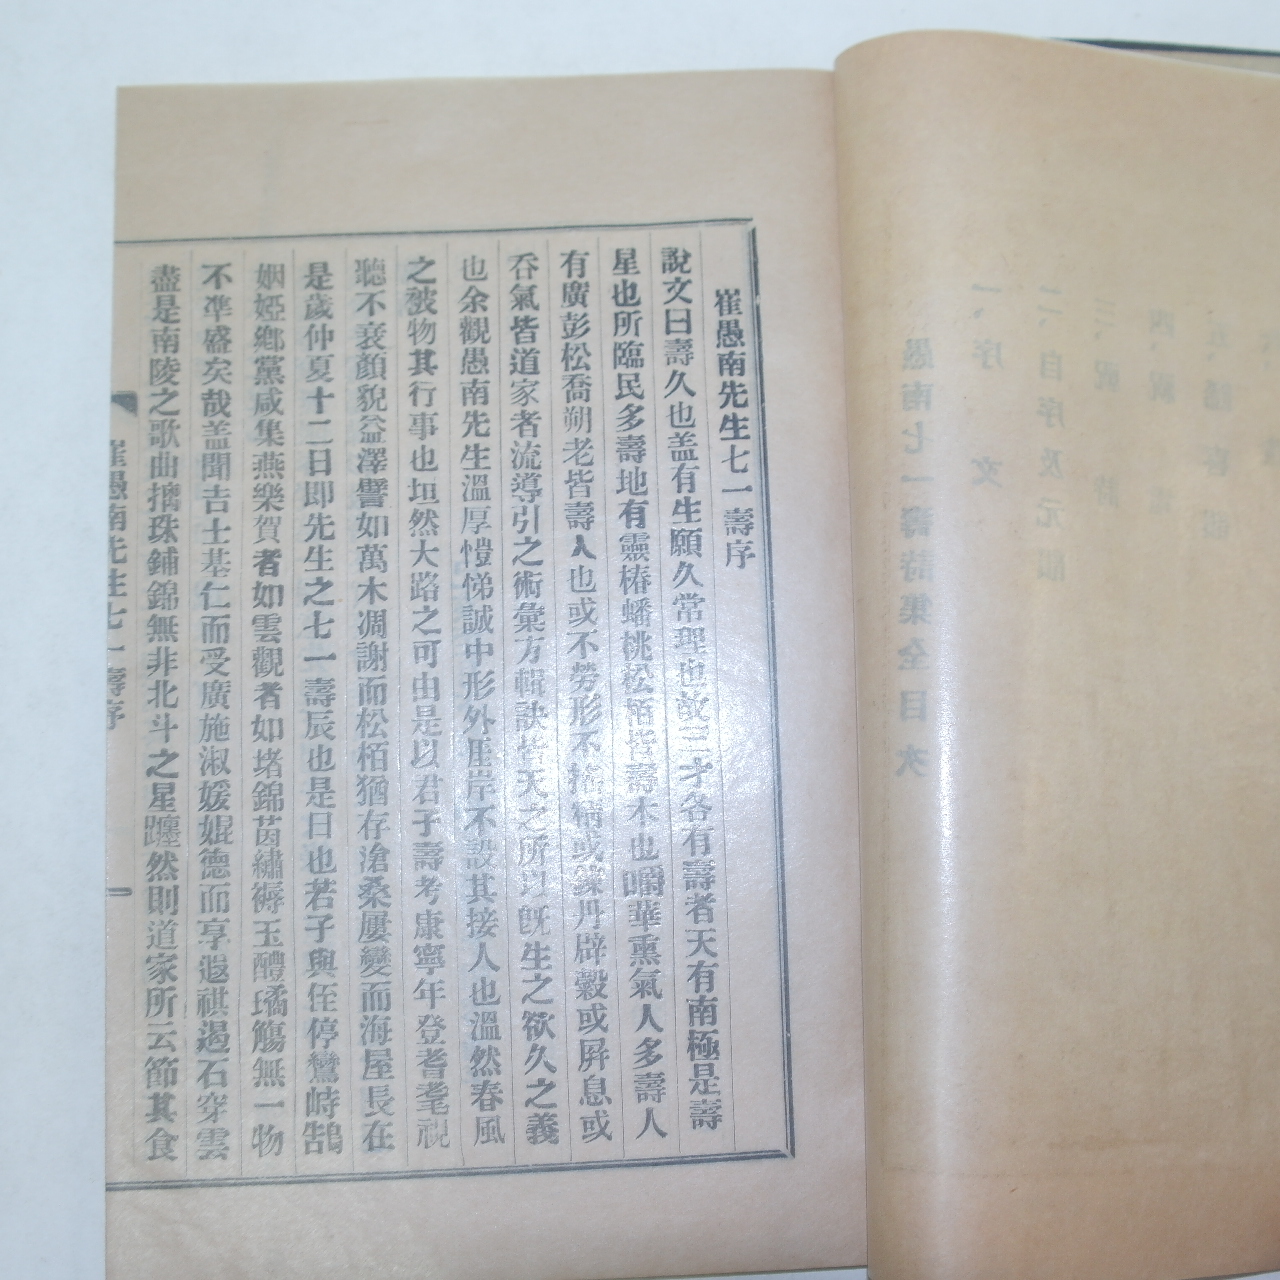 崔愚南先生七一壽序
說文曰壽久也盖有生願久常理也故三才各有壽者天有南極是壽
星也所臨民多壽地有靈椿蟠桃松栢皆壽木也嚼華熏氣人多壽人
有廣彭松喬朔老皆壽人也或不勞形不搖精或鍊丹辟穀或屛息或
吞氣皆道家者流導引之術彙方輯訣皆天之所以旣生之欲久之義
也余觀愚南先生溫厚愷悌誠中形外厓岸不設其接人也溫然春風
之被物其行事也坦然大路之可由是以君子壽考康寧年登耆耄視
聽不衰顏貌益澤譬如萬木凋謝而松栢猶存滄桑屢變而海屋長在
是歲仲夏十二日即先生之七一壽辰也是日也若子與侄停鸞峙鵠
姻婭鄕黨咸集燕樂賀者如雲觀者如堵錦茵繡褥玉醴璚觴無一物
不準盛矣哉盖聞吉士基仁而受廣施淑媛媲德而享遐祺遏石穿雲
盡是南陵之歌曲摛珠鋪錦無非北斗之星躔然則道家所云節其食
崔愚南先生七一壽序
愚南七一壽詩集全目次
一、序文
二、自序及元韻
三、祝詩